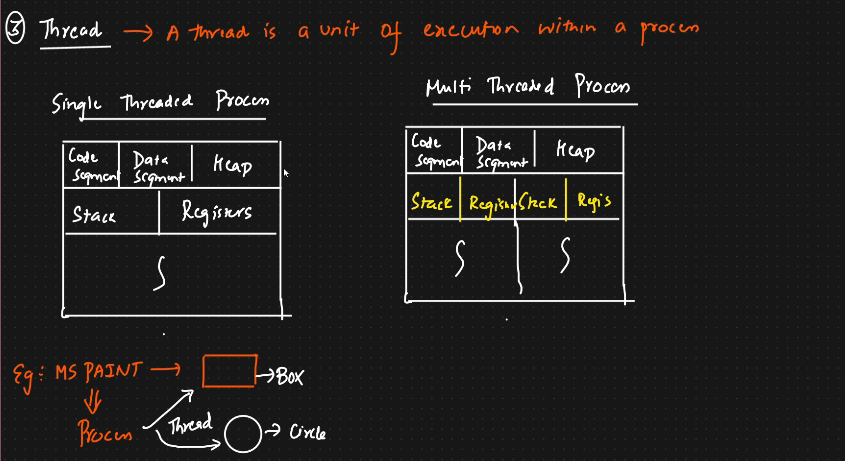 ③ Thread → A thread is a unit of execution within a process
Single Threaded Process
Multi Threaded Process
Code Segment Data Segment Heap
Stack Registers
Code Segment Data Segment Heap
Stack Register Stack Regis
Eg: MS PAINT → → Box
Process Thread → Circle